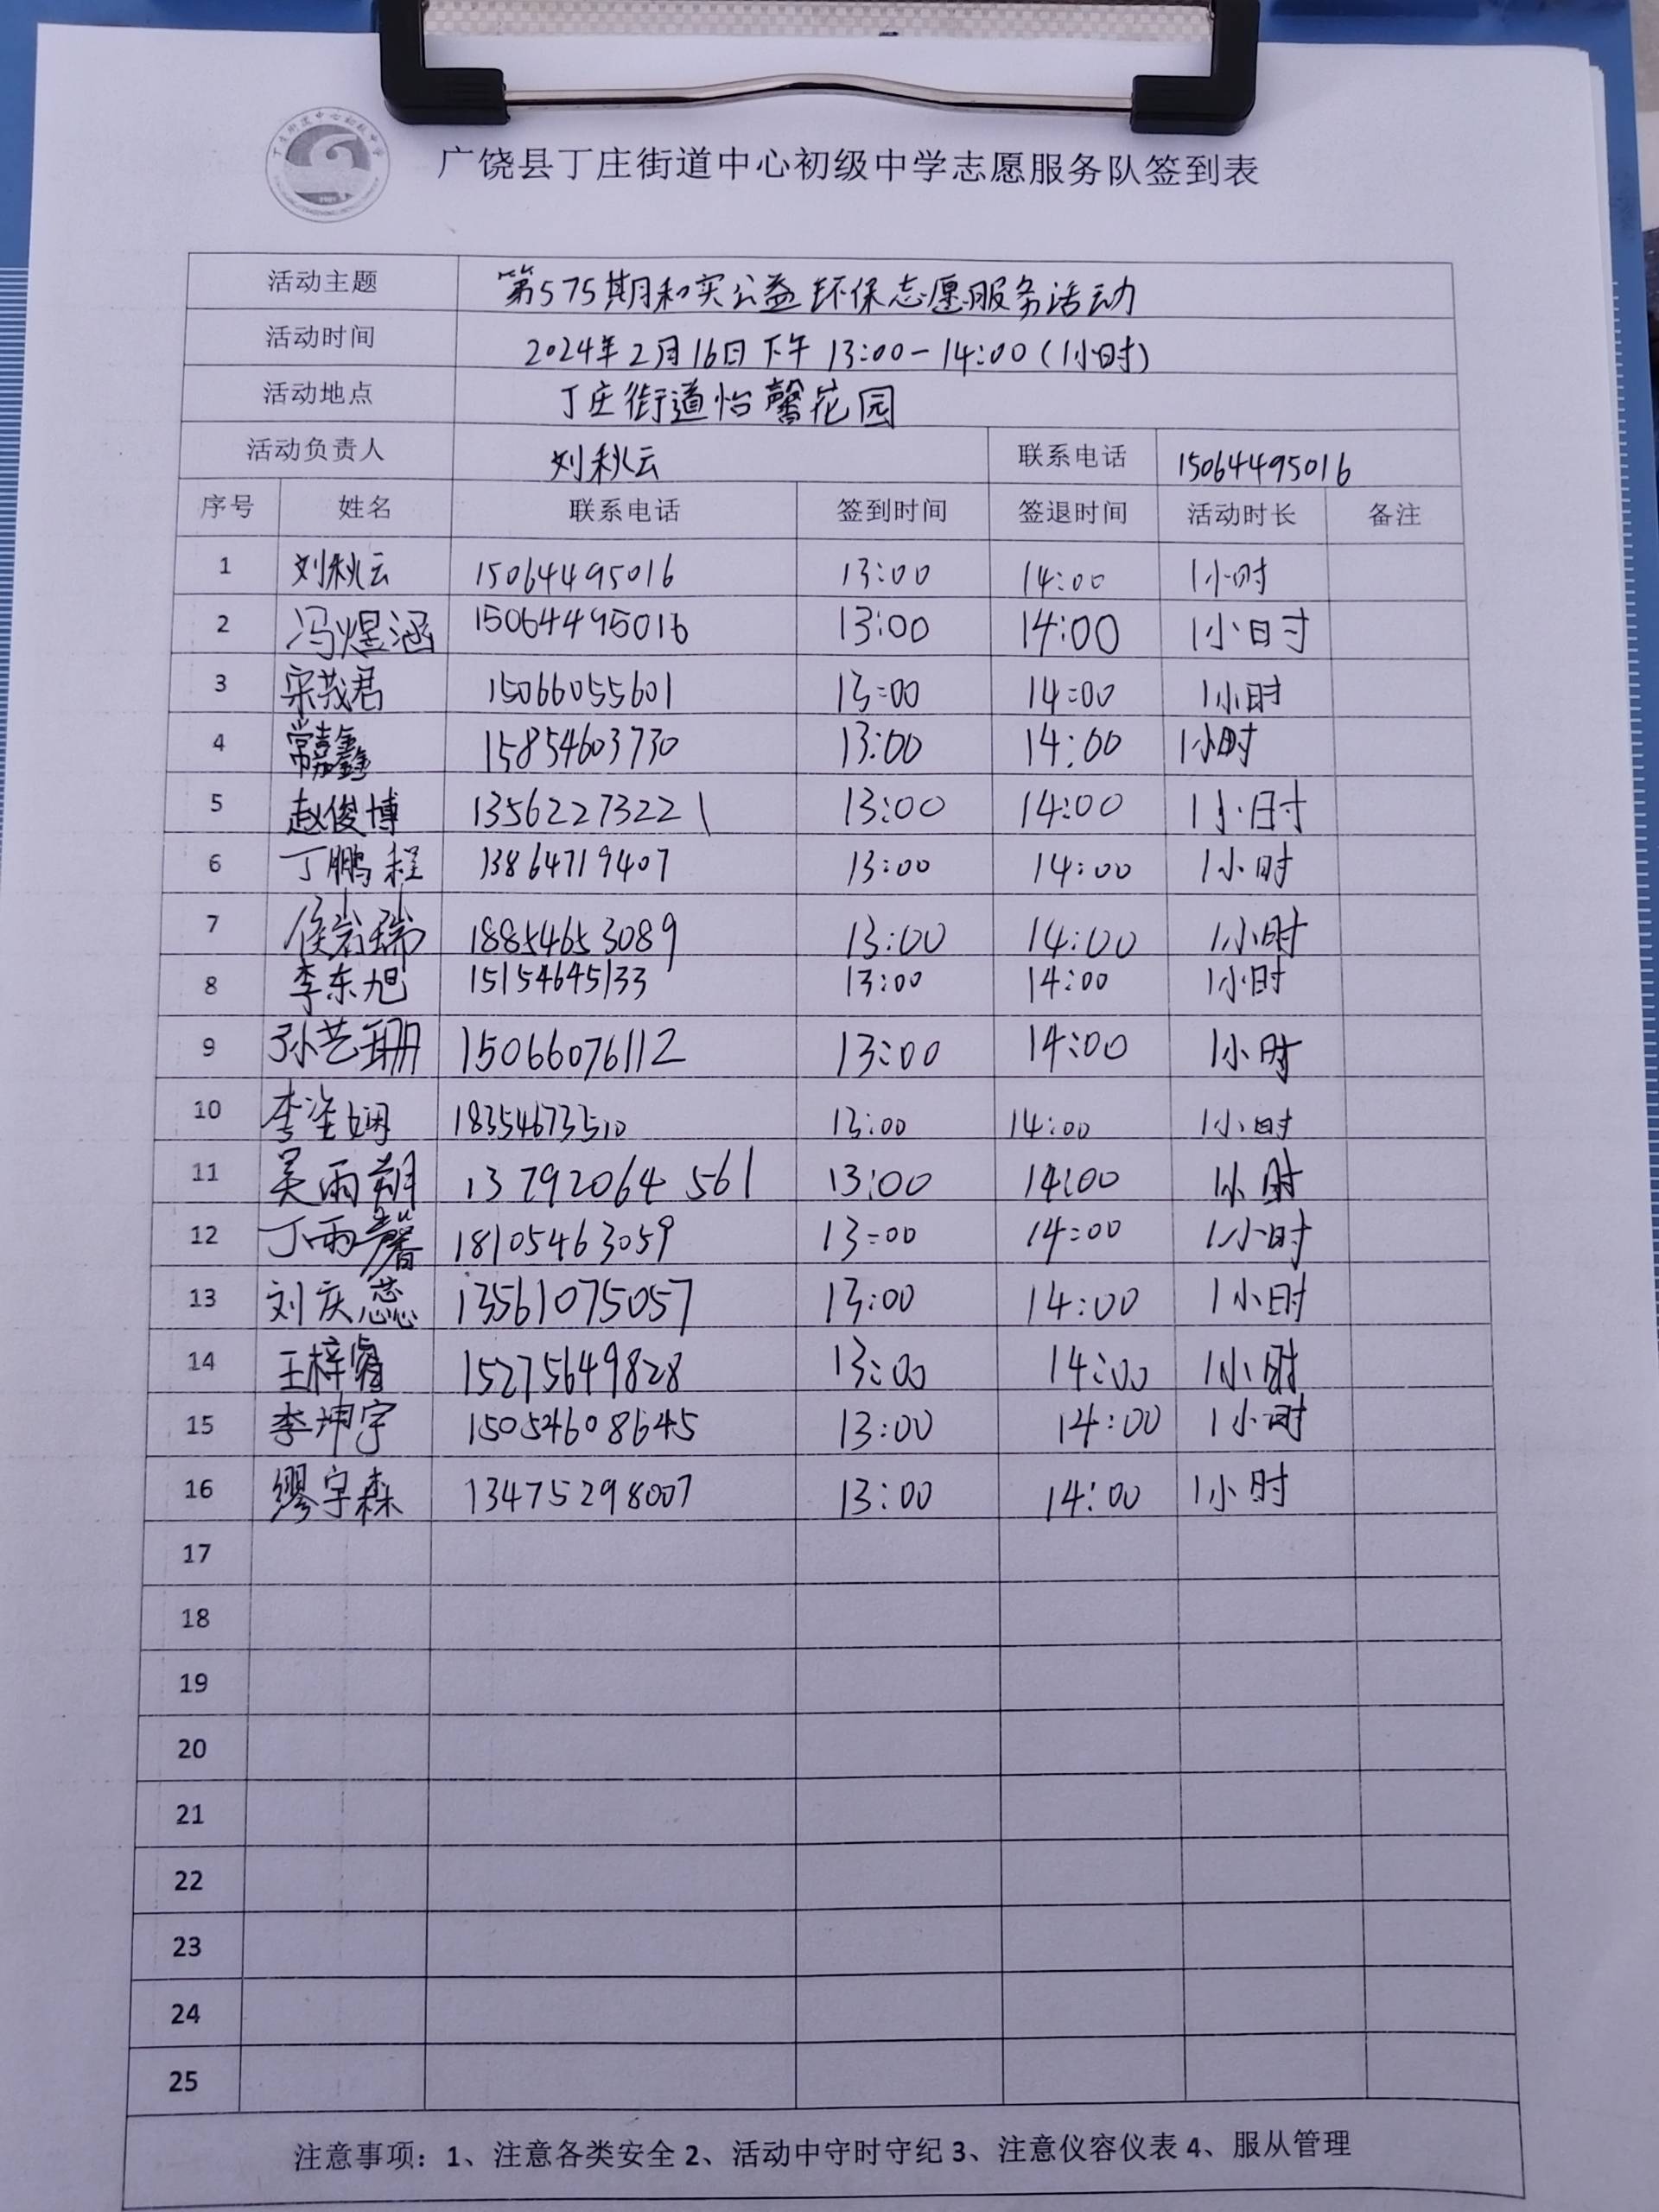 广饶县丁庄街道中心初级中学志愿服务队签到表
活动主题 第575期和实公益环保志愿服务活动
活动时间 2024年2月16日下午13:00-14:00(1小时)
活动地点 丁庄街道怡馨花园
活动负责人 刘秋云 联系电话 15064495016
序号 姓名 联系电话 签到时间 签退时间 活动时长 备注
1 刘秋云 15064495016 13:00 14:00 1小时
2 冯煜涵 15064495016 13:00 14:00 1小时
3 宋茂君 15066055601 13:00 14:00 1小时
4 常嘉鑫 15854603730 13:00 14:00 1小时
5 赵俊博 13562273221 13:00 14:00 1小时
6 丁鹏程 13864719407 13:00 14:00 1小时
7 侯岩瑞 18854653089 13:00 14:00 1小时
8 李东旭 15154645133 13:00 14:00 1小时
9 孙艺珊 15066076112 13:00 14:00 1小时
10 李姿娴 18354673510 13:00 14:00 1小时
11 吴雨朔 13792064561 13:00 14:00 1小时
12 丁雨馨 18105463059 13:00 14:00 1小时
13 刘庆蕊 13561075057 13:00 14:00 1小时
14 王梓睿 15275649828 13:00 14:00 1小时
15 李坤宇 15054608645 13:00 14:00 1小时
16 缪宇森 13475298007 13:00 14:00 1小时
17
18
19
20
21
22
23
24
25
注意事项：1、注意各类安全 2、活动中守时守纪 3、注意仪容仪表 4、服从管理